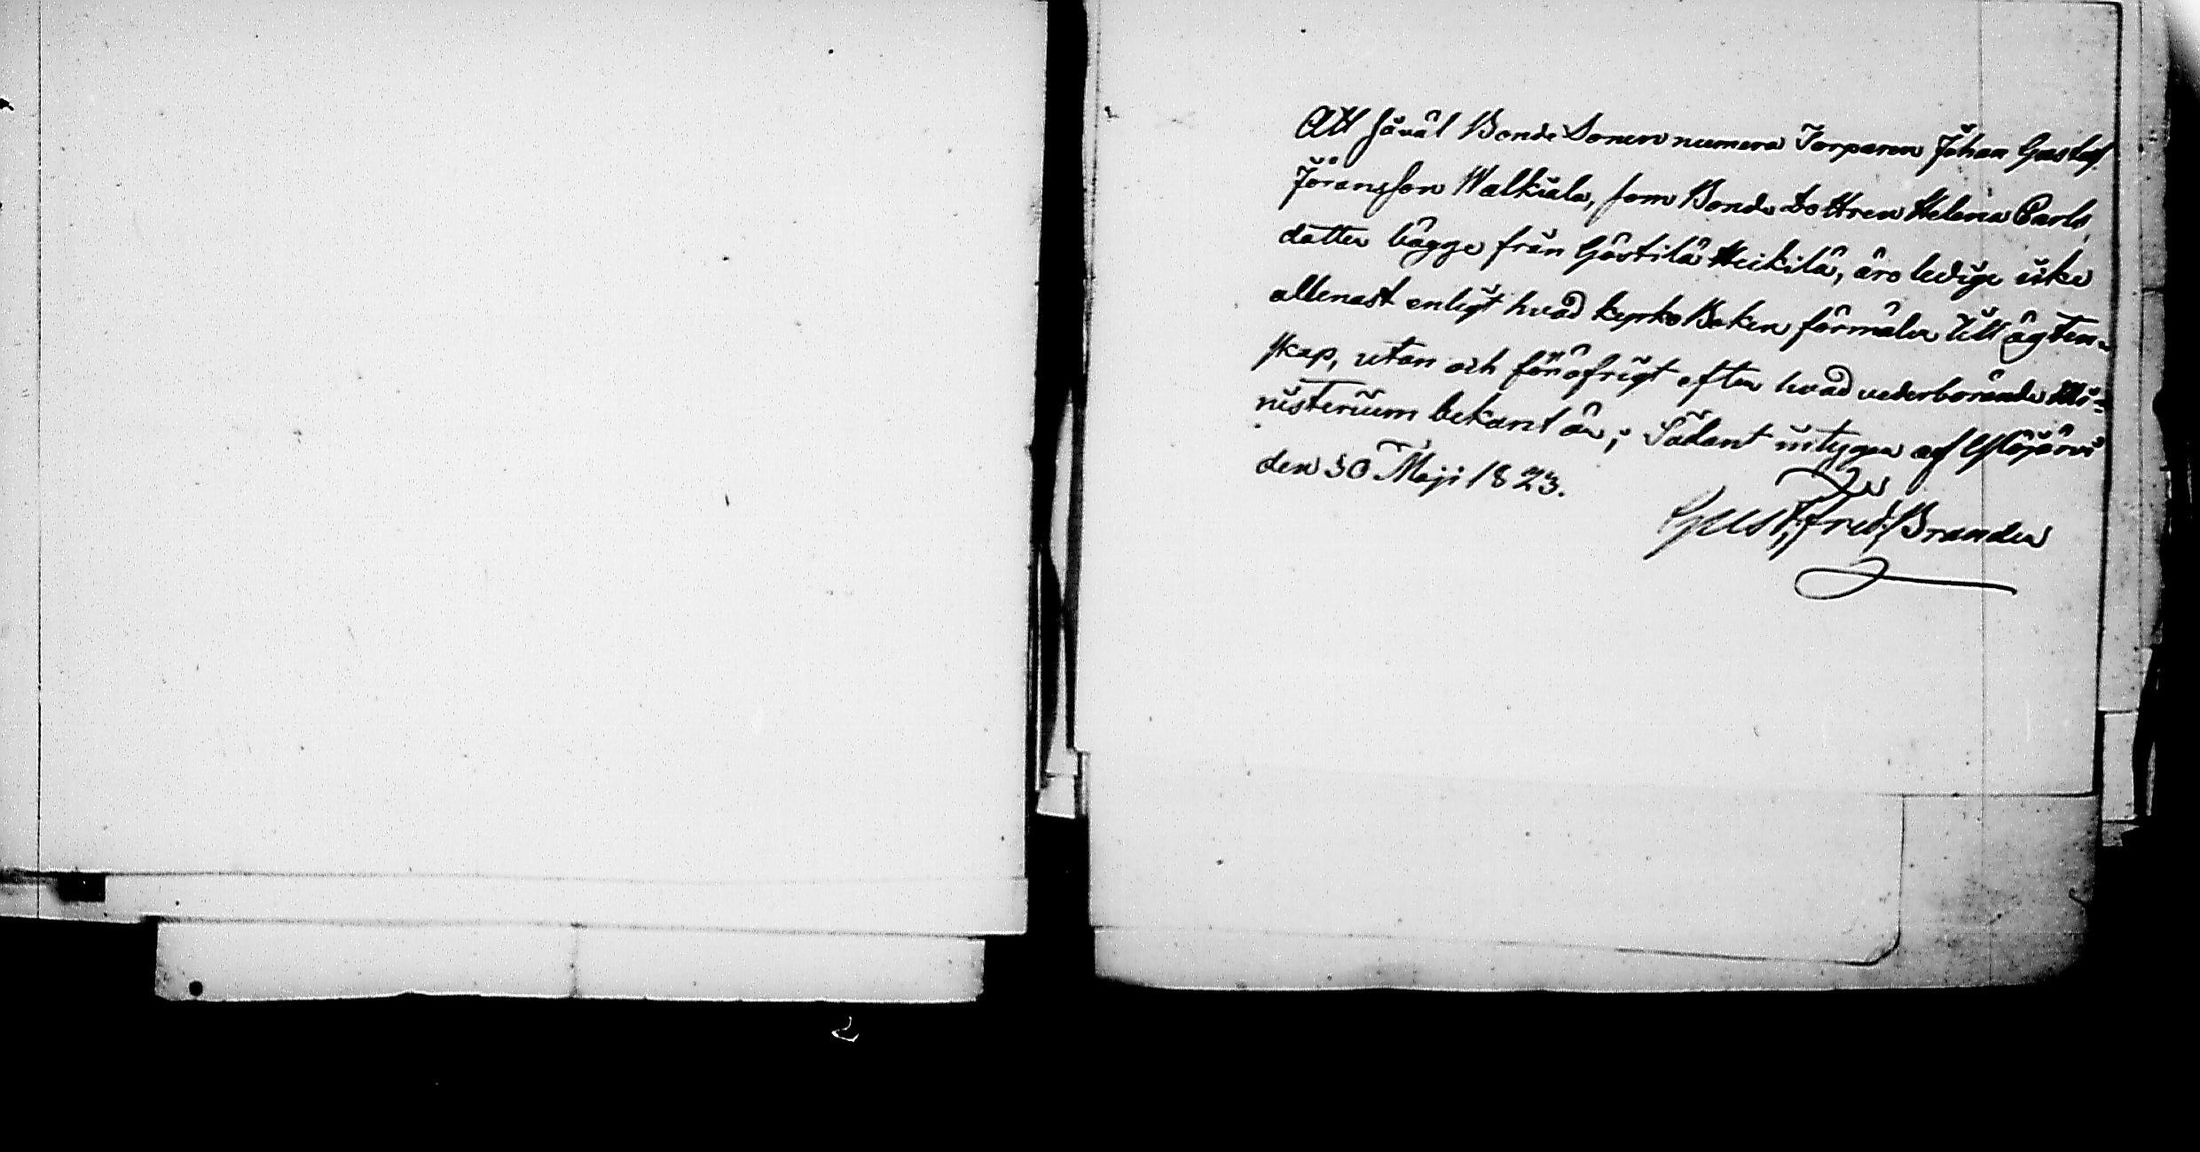 Att såväl Bonde Sonen numera Torparen Johan Gustaf
Jöransson Walkiala, som Bonde Dottren Helena Carls
dotter bägge från Göstilä Heikilä, äro ledige icke
allenast enligt hvad kyrko Boken förmäler till ägten-
skap, utan och för öfrigt efter hvad vederbörande Mi-
nisterium bekant är; Sådant intygar af Ylöjärvi
den 30 Maji 1823.
Gust. Fred. Brander
2